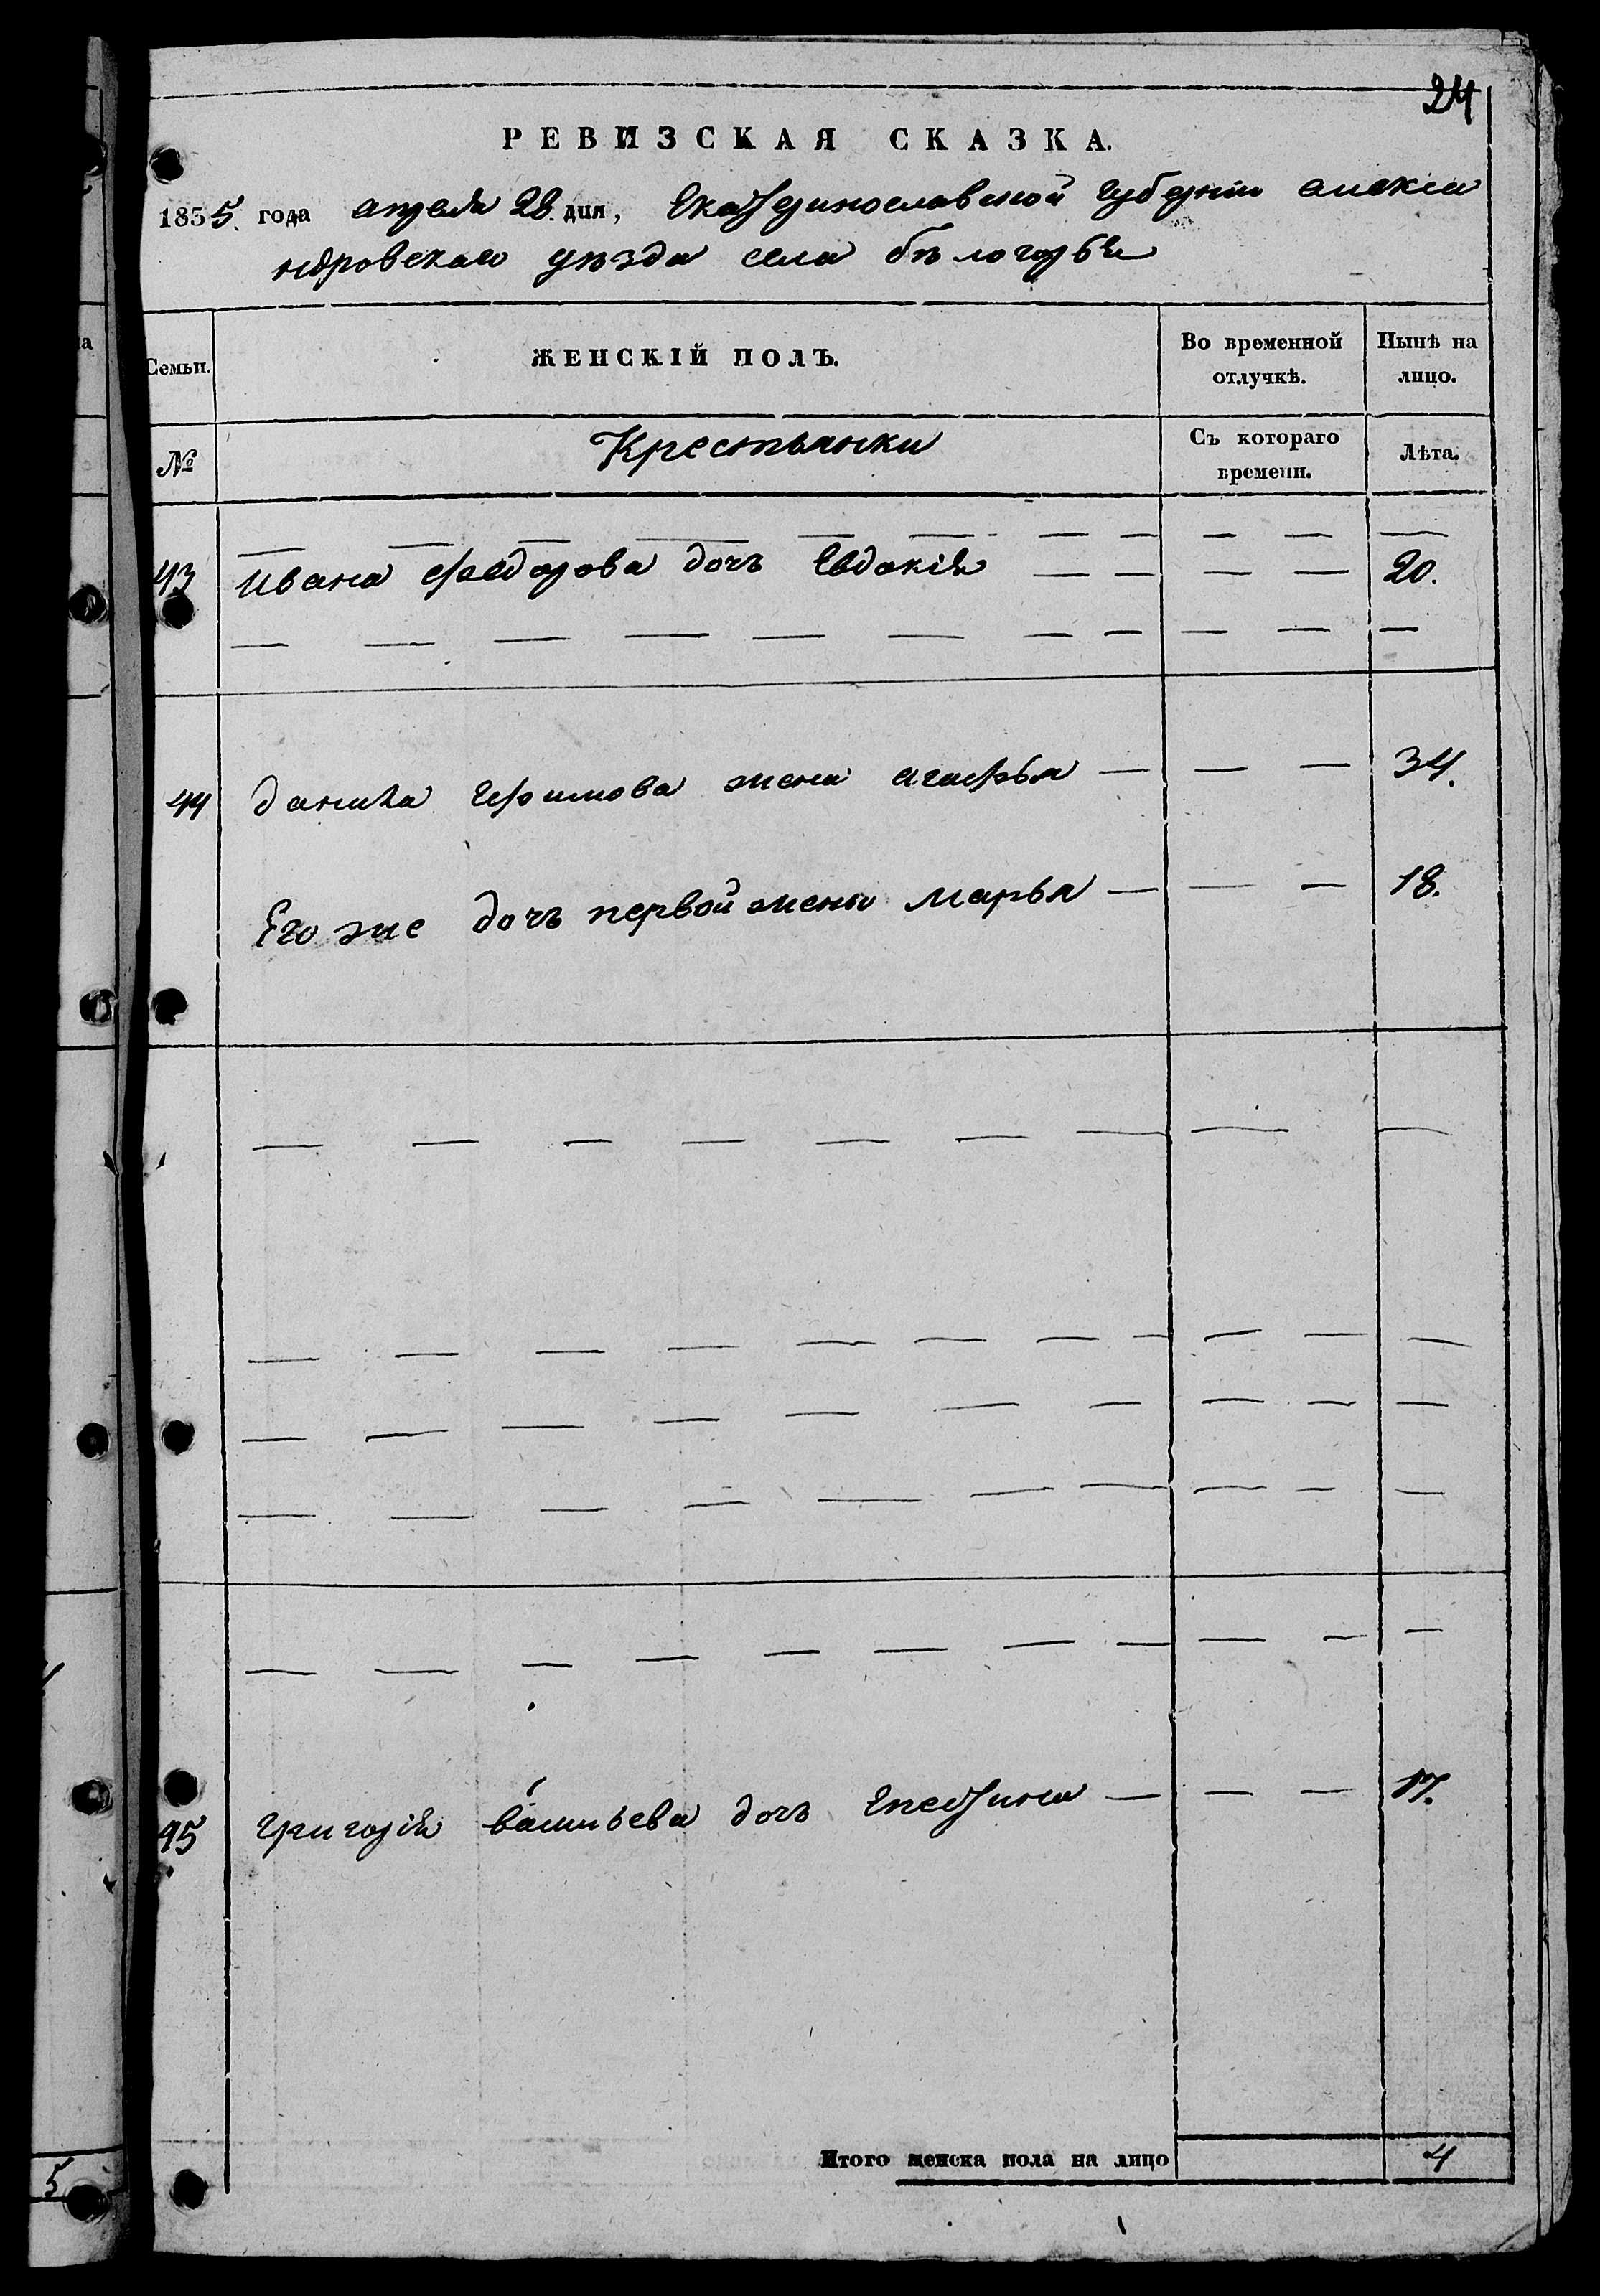 24
РЕВИЗСКАЯ СКАЗКА.
1835. года апреля 28. дня, Екатеринославской губернии алекса
ндровскаго уезда села бѣлогорья
Семьи.
ЖЕНСКІЙ ПОЛЪ.
Во временной отлучкѣ.
Нынѣ на лицо.
№
Крестьянки
Съ котораго времени.
Лѣта.
43 Ивана Федорова дочь Евдокія 20.
44 данила Ефимова жена агафья 34.
Его же дочь первой жены марья 18.
45 григорія васильева дочь 17.
Итого женска пола на лицо 4
5